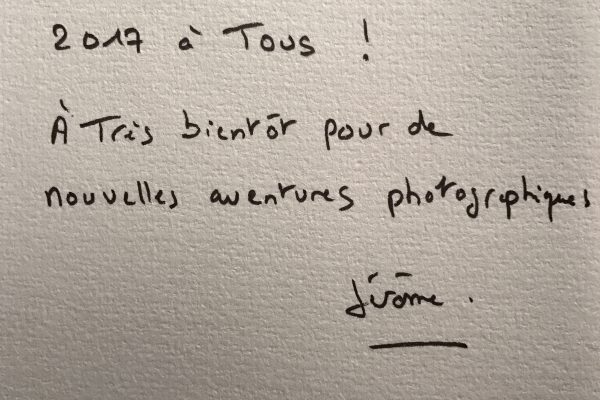 2017 à Tous !
À Très bientôt pour de
nouvelles aventures photographiques
Jérôme.